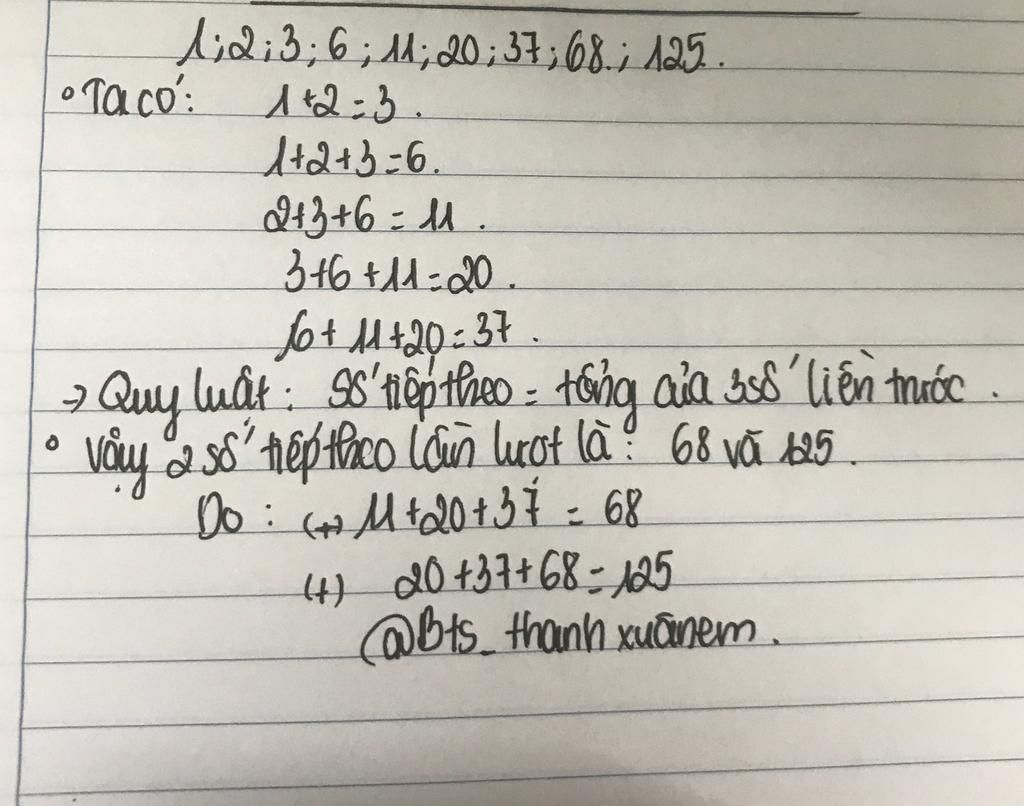 1; 2; 3; 6; 11; 20; 37; 68; 125.
• Ta có: 1+2=3.
1+2+3=6.
2+3+6=11.
3+6+11=20.
6+11+20=37.
→ Quy luật: Số tiếp theo = tổng của 3 số liền trước.
• Vậy 2 số tiếp theo lần lượt là: 68 và 125.
Do: (+) 11+20+37=68
(+) 20+37+68=125
@Bts_thanhxuânem.